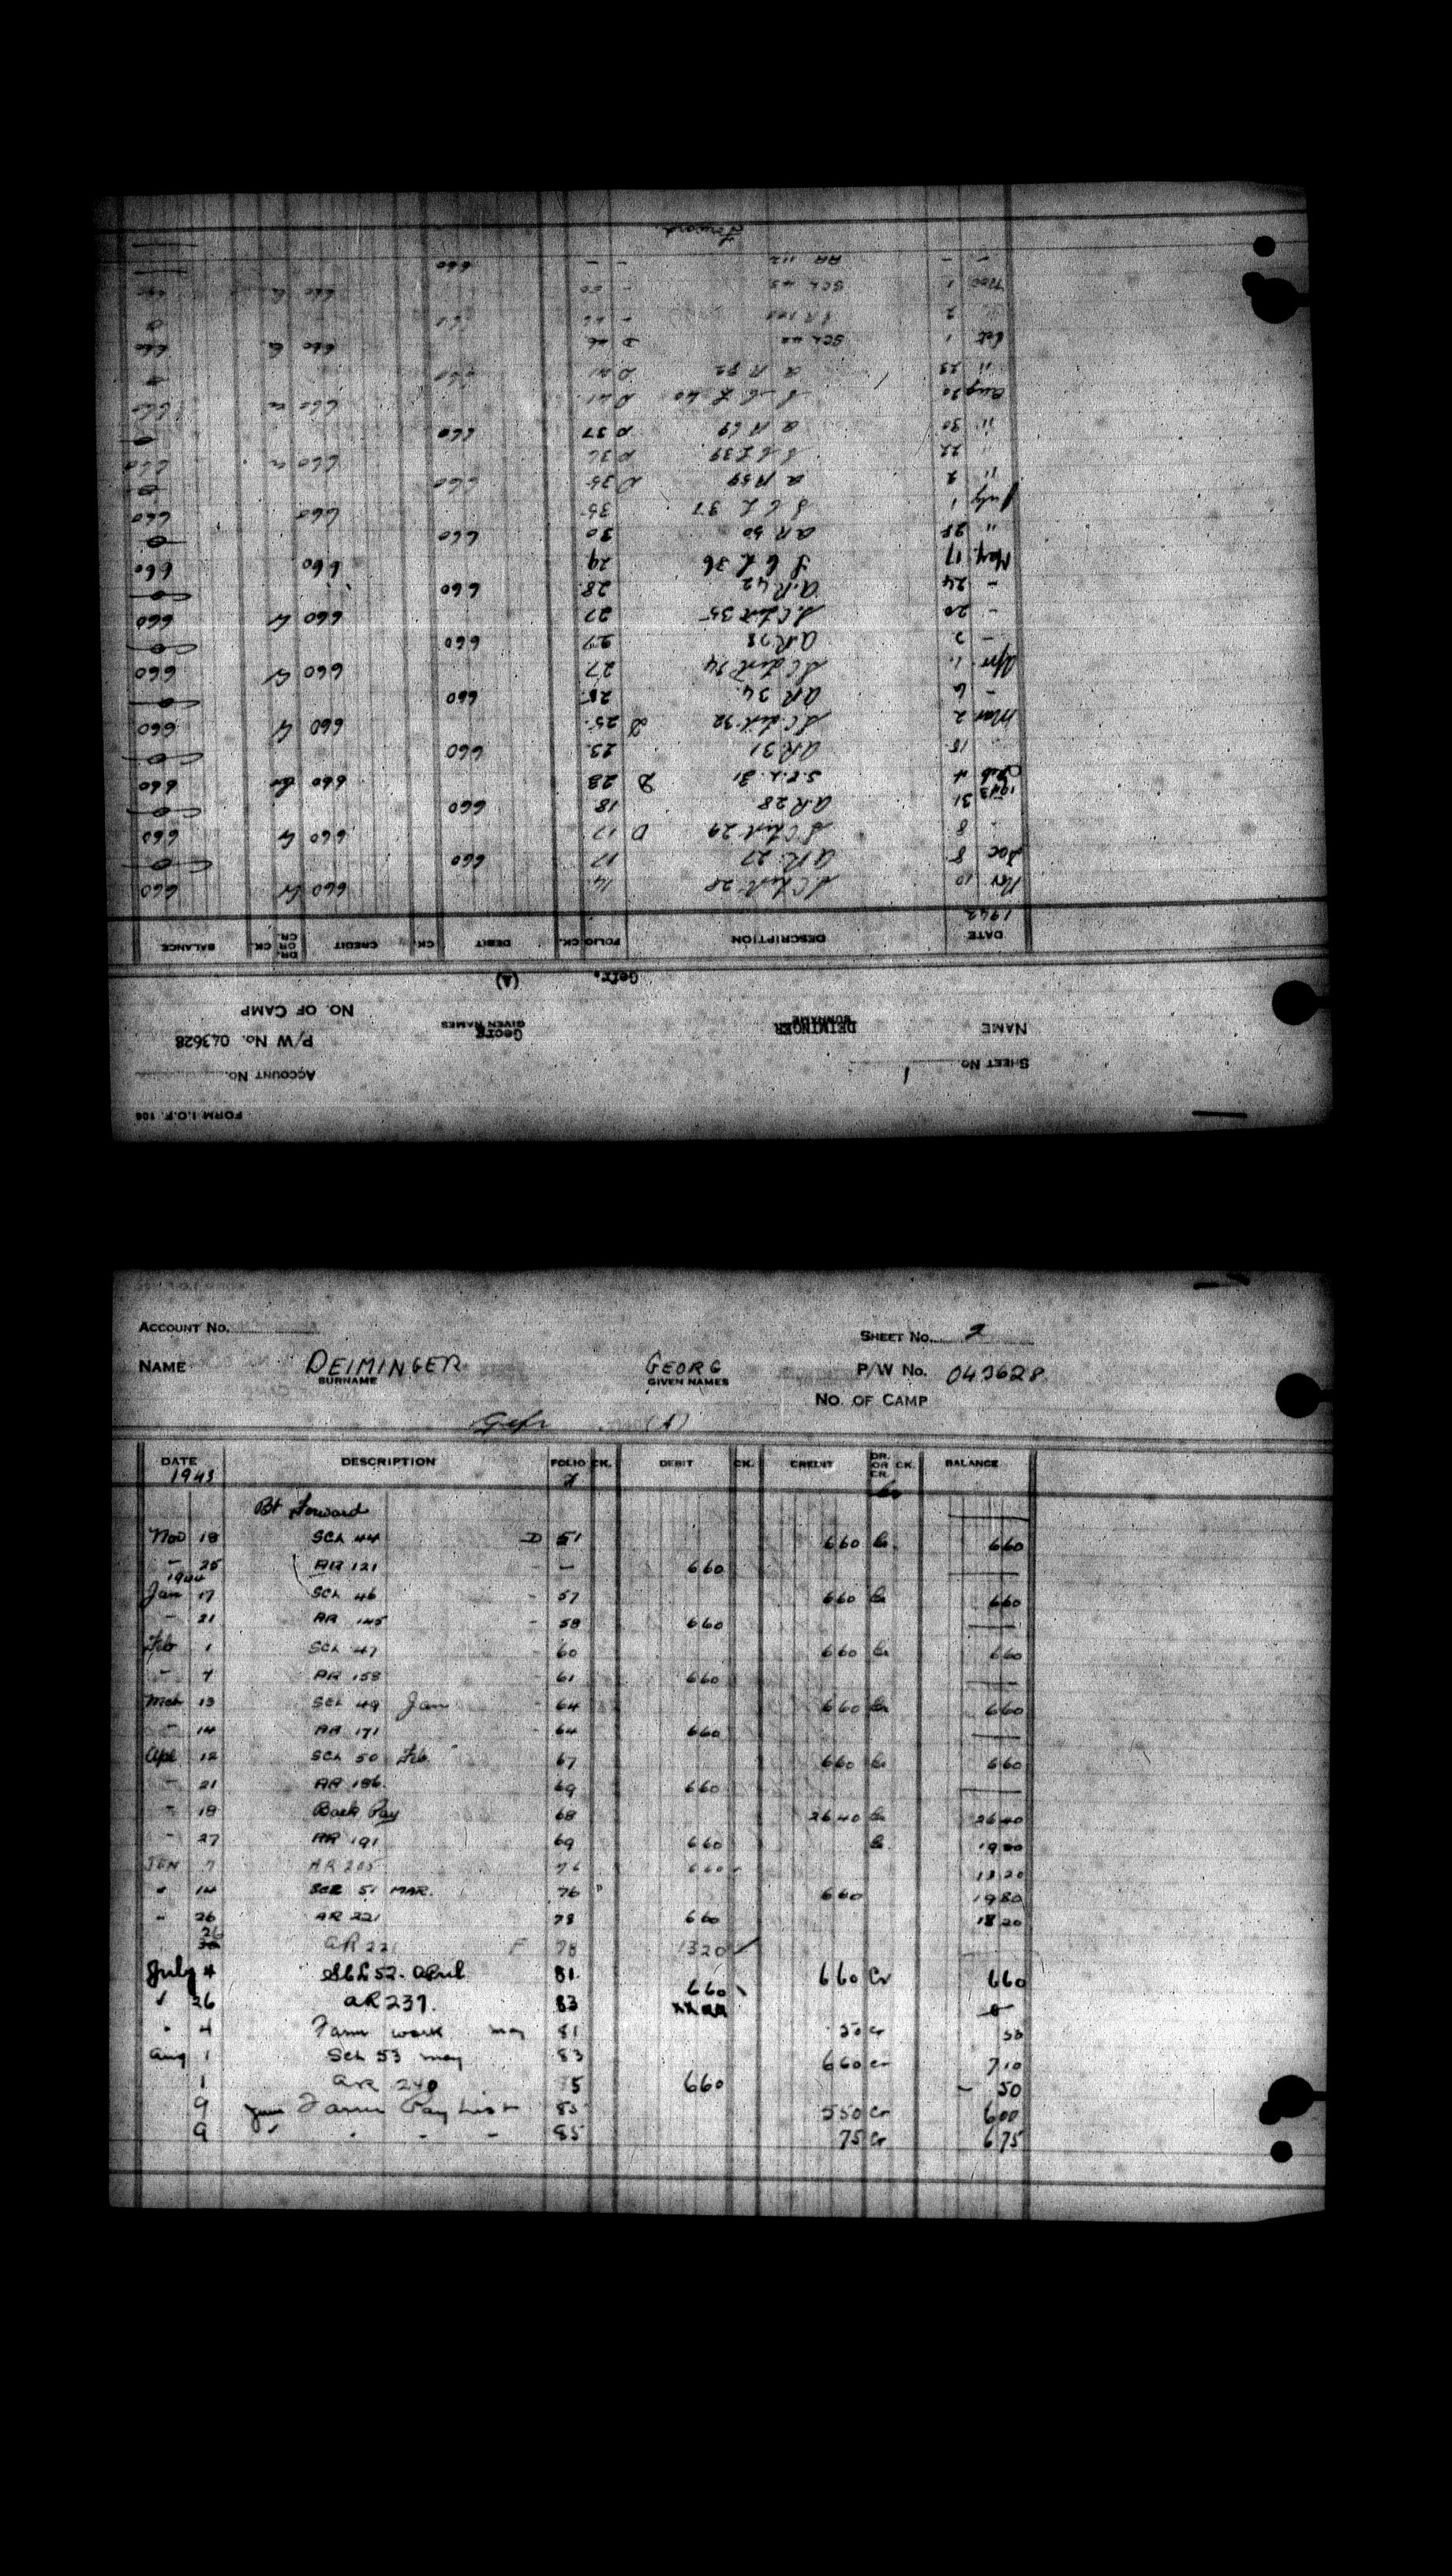 FORM I.O.F. 106
ACCOUNT No.
SHEET No. 1
P/W No. 043628
NAME DEIMINGER Georg
SURNAME GIVEN NAMES
NO. OF CAMP
Gefr. (A)
DATE DESCRIPTION FOLIO CK. DEBIT CK. CREDIT DR. OR CR. CK. BALANCE
1942
Nov 10 28 14 660 Cr 660
Dec 8 AR 27 17 660 0
8 29 D 17 660 Cr 660
31 AR 28 18 660 0
1943
Feb 4 S.C.L. 31 D 23 660 Cr 660
18 AR 31 23 660 0
Mar 2 32 D 25 660 Cr 660
- 6 AR 34 25 660 0
Apr 1 34 27 660 Cr 660
- 2 AR 38 27 660 0
- 20 35 27 660 Cr 660
- 24 A.R 42 28 660 0
May 17 S C L 36 29 660 660
" 28 AR 50 30 660 0
July 1 S C L 37 35 660 660
" 2 AR 59 D 35 660 0
" 22 S C L 39 D 36 660 Cr 660
" 30 AR 69 D 37 660 0
Aug 20 S C L 40 D 41 660 Cr 660
" 23 AR 82 D 41 660 0
Oct 1 SCL 42 D 46 660 Cr 660
2 - 46 660 0
Nov 1 SCL 43 - 50 660 Cr 660
- - AR 112 - - 660
Forward
ACCOUNT No.
SHEET No. 2
NAME DEIMINGER GEORG P/W No. 043628
SURNAME GIVEN NAMES
NO. OF CAMP
Gefr (A)
DATE DESCRIPTION FOLIO CK. DEBIT CK. CREDIT DR. OR CR. CK. BALANCE
1943
Bt Forward
Nov 18 SCL 44 D 51 660 Cr 660
- 25 AR 121 - - 660
1944
Jan 17 SCL 46 - 57 660 Cr 660
- 21 AR 145 - 58 660
Feb 1 SCL 47 - 60 660 Cr 660
- 7 AR 158 - 61 660
Mch 13 SCL 49 Jan - 64 660 Cr 660
- 14 AR 171 - 64 660
Apl 12 SCL 50 Feb 67 660 Cr 660
- 21 AR 186 69 660
- 18 Back Pay 68 2640 Cr 2640
- 27 AR 191 69 660 Cr 1980
JUN 7 AR 205 76 660 1320
" 14 SCL 51 MAR. 76 " 660 1980
" 26 AR 221 78 660 1320
26 AR 221 F 78 1320
July 4 SCL 52 April 81 660 Cr 660
" 26 AR 237. 83 660 0
" 4 Farm work May 81 50 cr 50
Aug 1 Sch 53 May 83 660 cr 710
1 AR 240 85 660 - 50
9 June Farm Pay List 85 550 Cr 600
9 " " - - 85 75 Cr 675